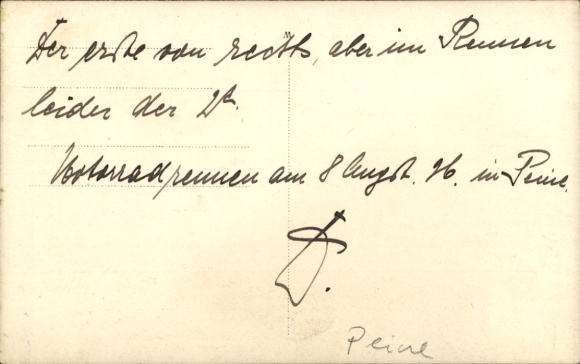 Der erste von rechts, aber im Rennen
leider der 2t.
Motorradrennen am 8 Augst. 26. in Peine.
Peine